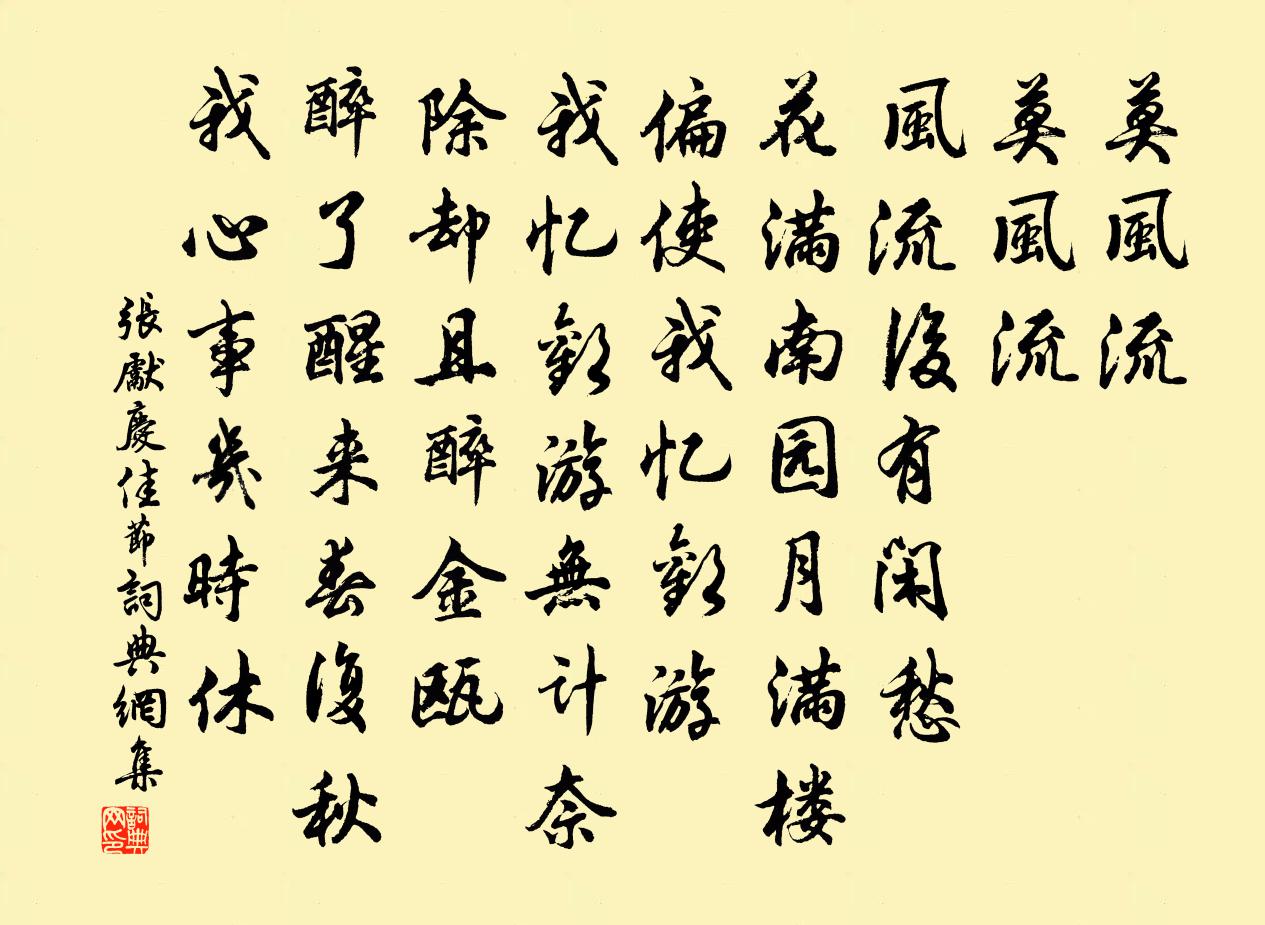 莫風流
莫風流
風流後有闲愁
花满南园月满楼
偏使我忆歡游
我忆歡游無计奈
除却且醉金瓯
醉了醒来春復秋
我心事幾時休
張獻慶佳節詞典網集
詞典网印